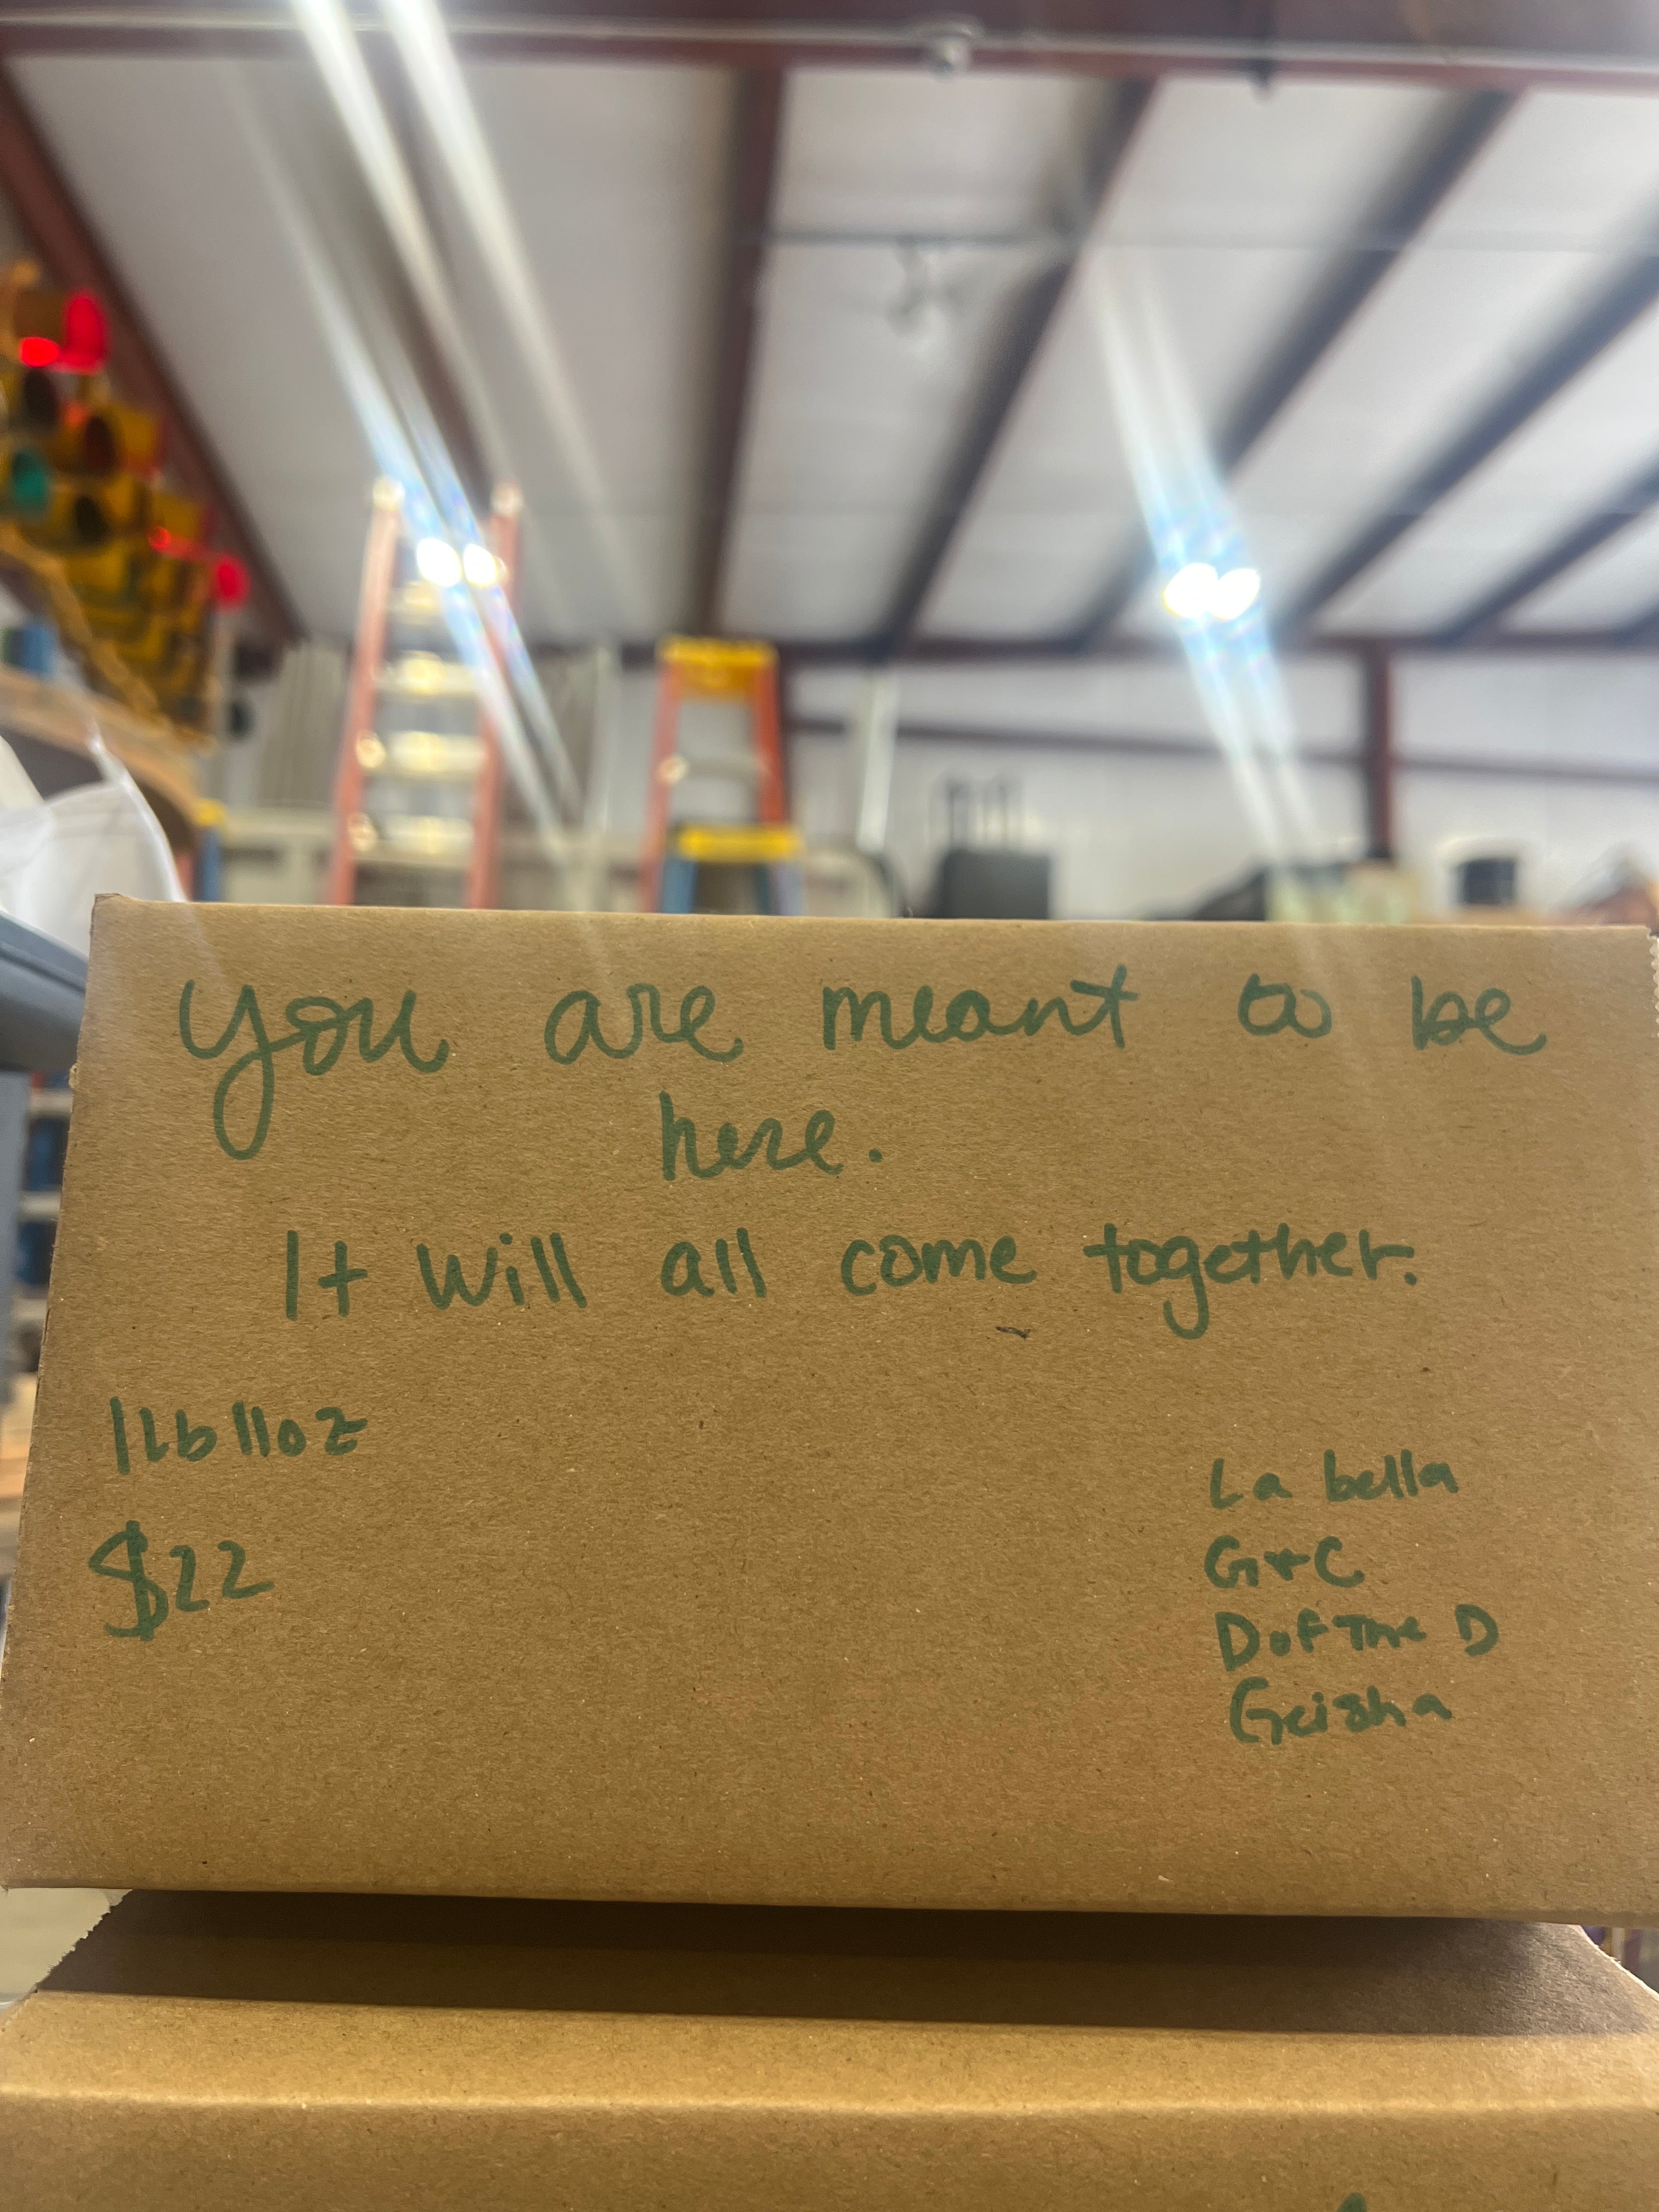 you are meant to be
here.
It will all come together.
1Lb 11oz
$22
La bella
G+C
D of The D
Geisha